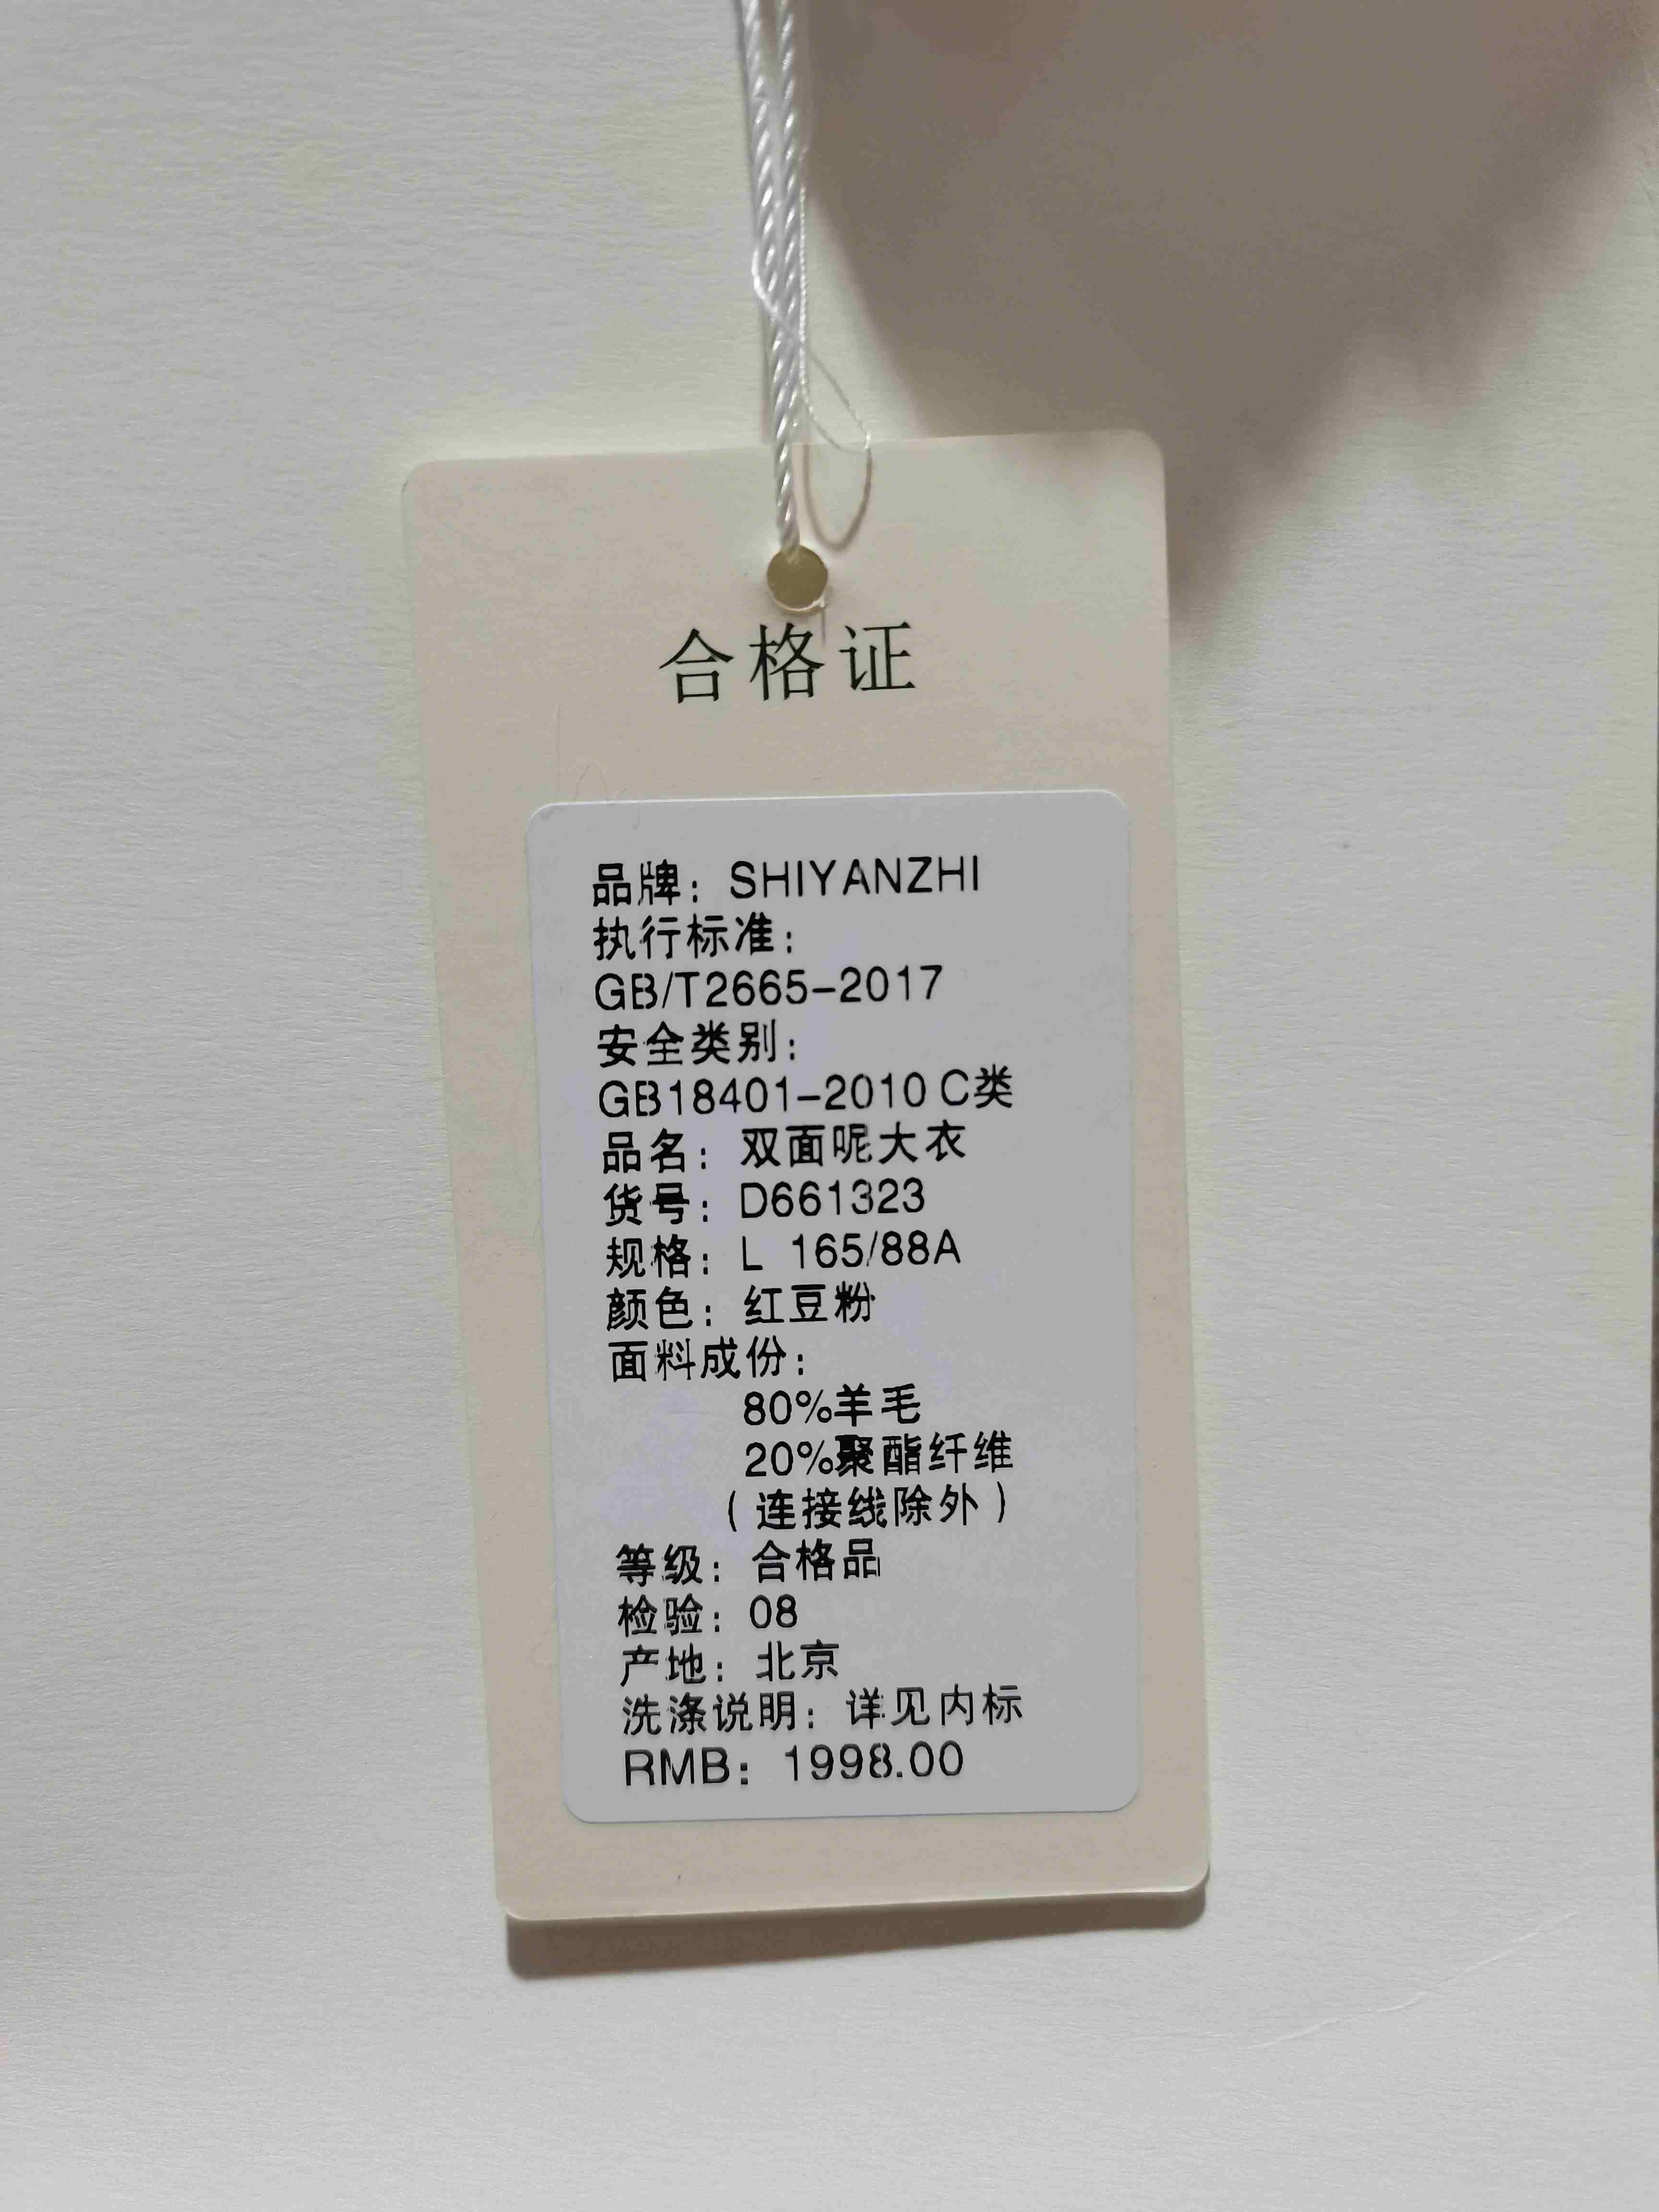 合格证
品牌：SHIYANZHI
执行标准：
GB/T2665-2017
安全类别：
GB18401-2010 C类
品名：双面呢大衣
货号：D661323
规格：L 165/88A
颜色：红豆粉
面料成份：
80%羊毛
20%聚酯纤维
（连接线除外）
等级：合格品
检验：08
产地：北京
洗涤说明：详见内标
RMB：1998.00